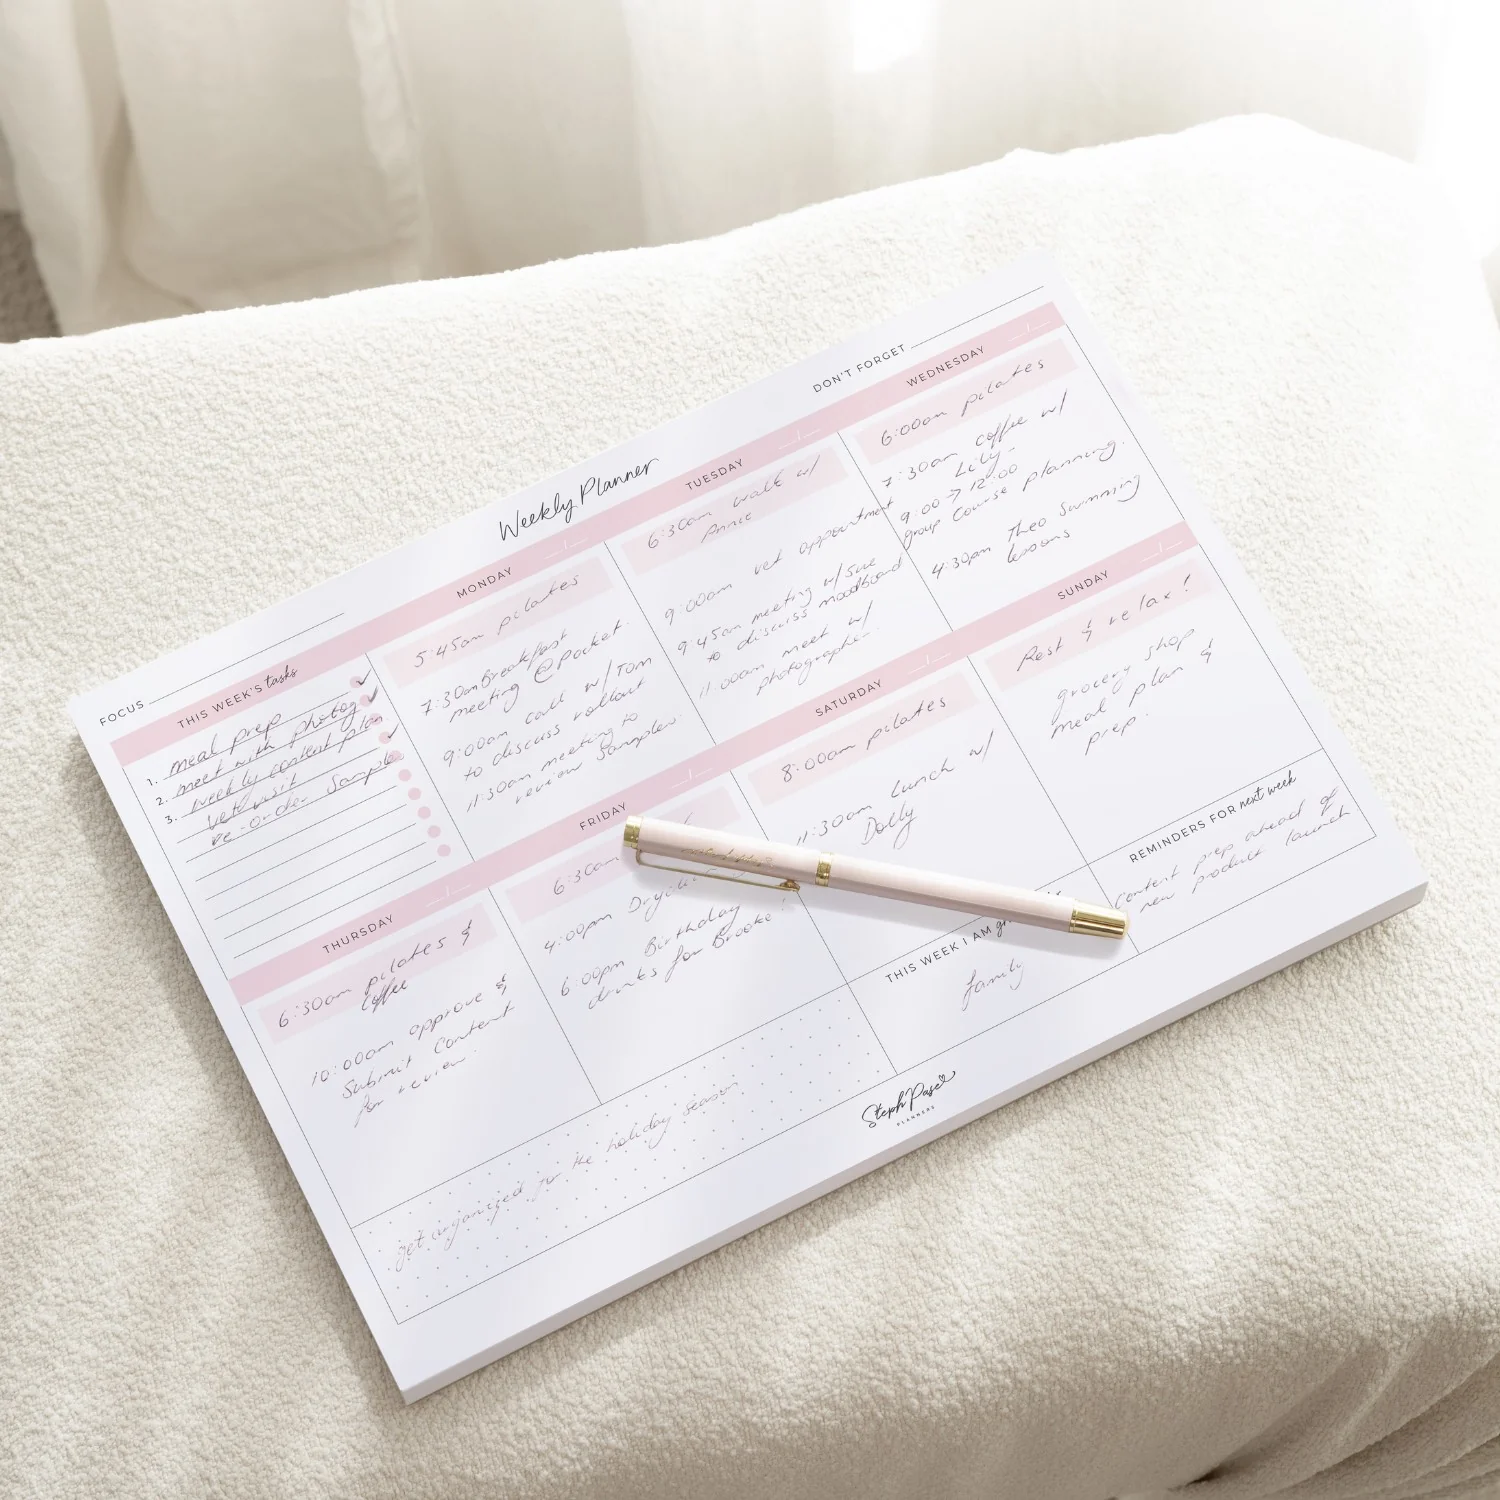 Weekly Planner
FOCUS
DON'T FORGET
THIS WEEK'S tasks
1. meal prep
2. meet with photog
3. weekly content plan
vet visit
re-order samples
MONDAY
5:45am pilates
7:30am Breakfast
meeting @ pocket.
9:00am call w/ Tom
to discuss rollout
11:30am meeting to
review samples.
TUESDAY
6:30am walk w/
Annie
9:00am vet appointment
9:45am meeting w/ Sue
to discuss moodboard
11:00am meet w/
photographer
WEDNESDAY
6:00am pilates
7:30am coffee w/
Lily-
9:00 → 12:00
group course planning.
4:30pm Theo swimming
lessons
THURSDAY
6:30am pilates &
coffee
10:00am approve &
submit content
for review.
FRIDAY
6:30am
4:00pm
6:00pm Birthday
drinks for Brooke!
SATURDAY
8:00am pilates
11:30am Lunch w/
Dolly
SUNDAY
Rest & relax!
grocery shop
meal plan &
prep.
THIS WEEK I AM
family
REMINDERS FOR next week
content prep ahead of
new product launch
get organised for the holiday season
Steph Pase
PLANNERS